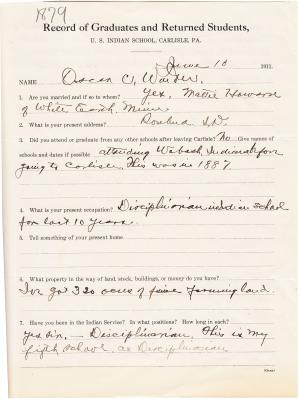 1879
Record of Graduates and Returned Students,
U. S. INDIAN SCHOOL, CARLISLE, PA.
June 10 1911.
NAME Oscar C.
1. Are you married and if so to whom? Yes, Mattie Howard
of White Earth, Minn
2. What is your present address? Rosebud S.D.
3. Did you attend or graduate from any other schools after leaving Carlisle? No Give names of
schools and dates if possible attending Wabash, Indiana before
going to Carlisle. This was in 1887.
4. What is your present occupation? Disciplinarian in Indian School
for last 10 years.
5. Tell something of your present home.
6. What property in the way of land, stock, buildings, or money do you have?
I've got 320 acres of fine farming land.
7. Have you been in the Indian Service? In what positions? How long in each?
yes sir, — Disciplinarian, This is my
fifth school as Disciplinarian